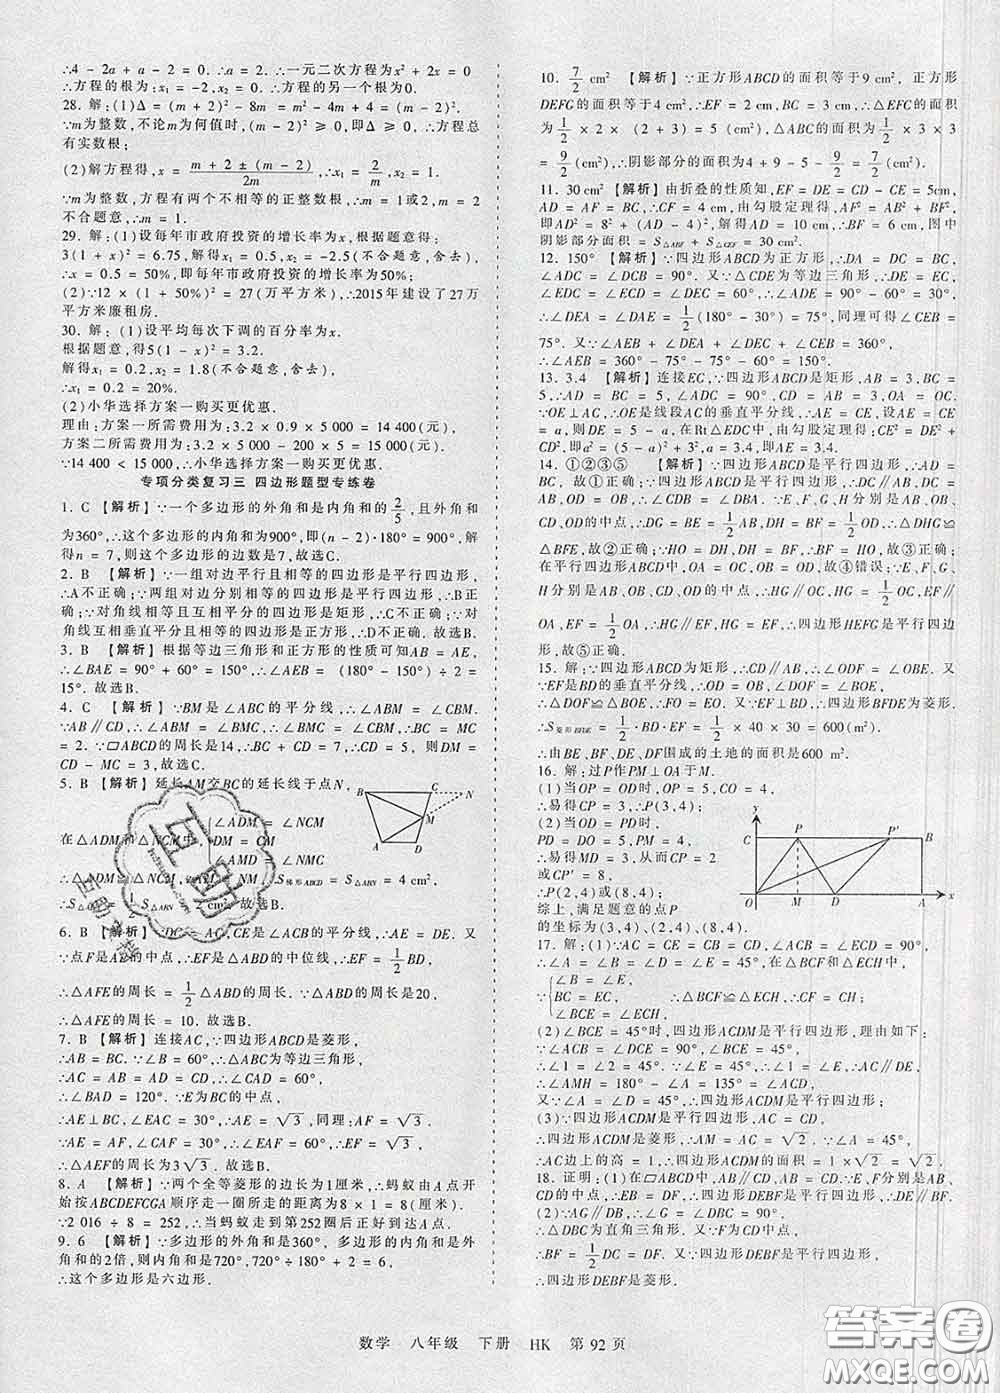 ∴4 - 2a + a - 2 = 0. ∴a = 2. ∴一元二次方程为x² + 2x = 0
∴方程的根为: x₁ = 0, x₂ = -2.
28. 解: (1)Δ = (m + 2)² - 8m = m² - 4m + 4 = (m - 2)².
∵m为整数,不论m为何值时,(m - 2)² ≥ 0,即Δ ≥ 0, ∴方程总
有实数根;
(2)解方程得, x = (m + 2 ± (m - 2))/2m, ∴x₁ = 2/m, x₂ = 1.
∵m为整数,方程有两个不相等的正整数根, ∴m = 1或2,m = 2
不合题意, ∴m = 1.
29. 解: (1)设每年市政府投资的增长率为x,根据题意得:
3(1 + x)² = 6.75, 解得x₁ = 0.5, x₂ = -2.5(不合题意,舍去),
∴x = 0.5 = 50%,即每年市政府投资的增长率为50%;
(2)∵12 × (1 + 50%)² = 27(万平方米),∴2015年建设了27万
平方米廉租房.
30. 解: (1)设平均每次下调的百分率为x.
根据题意,得5(1 - x)² = 3.2.
解得x₁ = 0.2, x₂ = 1.8(不合题意,舍去),
∴x₁ = 0.2 = 20%.
(2)小华选择方案一购买更优惠.
理由: 方案一所需费用为: 3.2 × 0.9 × 5 000 = 14 400(元),
方案二所需费用为: 3.2 × 5 000 - 200 × 5 = 15 000(元),
∵14 400 < 15 000, ∴小华选择方案一购买更优惠.
专项分类复习三 四边形题型专练卷
1. C 【解析】∵一个多边形的外角和是内角和的2/5,且外角和
为360°,∴这个多边形的内角和为900°,即(n - 2)·180° = 900°,解
得n = 7,则这个多边形的边数是7,故选C.
2. B 【解析】∵一组对边平行且相等的四边形是平行四边形,
∴A不正确; ∵两组对边分别相等的四边形是平行四边形,∴B正
确; ∵对角线相等且互相平分的四边形是矩形,∴C不正确; ∵对
角线互相垂直平分且相等的四边形是正方形,∴D不正确.故选B.
3. B 【解析】根据等边三角形和正方形的性质可知AB = AE,
∴∠BAE = 90° + 60° = 150°, ∴∠ABE = (180° - 150°) ÷ 2 =
15°. 故选B.
4. C 【解析】∵BM是∠ABC的平分线,∴∠ABM = ∠CBM.
∵AB∥CD, ∴∠ABM = ∠BMC, ∴∠BMC = ∠CBM, ∴BC = MC =
2. ∵▱ABCD的周长是14, ∴BC + CD = 7, ∴CD = 5, 则DM =
CD - MC = 3,故选C.
5. B 【解析】延长AM交BC的延长线于点N,
在△ADM和△NCM中,
∠ADM = ∠NCM
DM = CM
∠AMD = ∠NMC
∴△ADM≌△NCM, ∴AM = NM, ∴S梯形ABCD = S△ABN = 4 cm²,
= 1/2 S△ABN = 2 cm².故选B.
6. B 【解析】∵DC = AC,CE是∠ACB的平分线,∴AE = DE. 又
∵点F是AB的中点,∴EF是△ABD的中位线,∴EF = 1/2 BD,
∴△AFE的周长 = 1/2 △ABD的周长. ∵△ABD的周长是20,
∴△AFE的周长 = 10. 故选B.
7. B 【解析】连接AC, ∵四边形ABCD是菱形,
∴AB = BC. ∵∠B = 60°,∴△ABC为等边三角形,
∴AC = AB = AD = CD, ∴∠ACB = ∠D = 60°,
∴∠BAD = 120°. ∵E为BC的中点,
∴AE⊥BC, ∠EAC = 30°, ∴AE = √3,同理: AF = √3,
∴AE = AF, ∠EAF = 60°, ∴EF = √3,
∴△AEF的周长为3√3. 故选B.
8. A 【解析】∵两个全等菱形的边长为1厘米,∴蚂蚁由A点开
始按ABCDEFCGA顺序走一圈所走的距离为8×1 = 8(厘米).
∵2 016 ÷ 8 = 252, ∴当蚂蚁走到第252圈后正好到达A点.
9. 6 【解析】∵多边形的外角和是360°,多边形的内角和是外角
和的2倍,则内角和是720°,720° ÷ 180° + 2 = 6,
∴这个多边形是六边形.
B C N M A D
10. 7/2 cm² 【解析】∵正方形ABCD的面积等于9 cm²,正方形
DEFG的面积等于4 cm²,∴EF = 2 cm, BC = 3 cm, ∴△EFC的面积为
1/2 × 2 × (2 + 3) = 5 (cm²), △ABC的面积为 1/2 × 3 × 3 =
9/2 (cm²),∴阴影部分的面积为4 + 9 - 5 - 9/2 = 7/2 (cm²).
11. 30 cm² 【解析】由折叠的性质知,EF = DE = CD - CE = 5cm,
AD = AF = BC, ∴CF = 4 cm,由勾股定理得, AF² = AB² + BF²,
即AD² = 8² + (AD - 4)², 解得AD = 10 cm, ∴BF = 6 cm,图中
阴影部分面积 = S△ABF + S△CEF = 30 cm².
12. 150° 【解析】∵四边形ABCD为正方形,∴DA = DC = BC,
∠ADC = ∠BCD = 90°. 又∵△CDE为等边三角形,∴DE = CE,
∠EDC = ∠ECD = 60°, ∴DE = DA, CE = BC, ∠ADE = 30°,
∴∠DEA = ∠DAE = 1/2(180° - 30°) = 75°,同理可得∠CEB =
75°. 又∵∠AEB + ∠DEA + ∠DEC + ∠CEB = 360°,
∴∠AEB = 360° - 75° - 75° - 60° = 150°.
13. 3.4 【解析】连接EC,∵四边形ABCD为矩形,AB = 3,BC =
5, ∴DC = AB = 3,∠ADC = 90°,AD = BC = 5,OA = OC.
∵OE⊥AC,∴OE是线段AC的垂直平分线,∴AE = CE, 设AE = CE =
a,则DE = 5 - a,在Rt△EDC中,由勾股定理得: CE² = DE² +
CD²,即a² = (5 - a)² + 3²,解得a = 3.4,即AE = 3.4.
14. ①②③⑤ 【解析】∵四边形ABCD是平行四边形,∴AD =
BC,AD∥BC,故①正确; ∵E、F、G、H分别是AB、OB、CD、
OD的中点,∴DG = BE = 1/2 AB, DH = BF = 1/2 OD, ∴△DHG≌
△BFE,故②正确; ∵HO = DH, DH = BF, ∴BF = HO,故③正确;
在平行四边形ABCD中,OA = OC, ∴OB ≠ OA,故④错误; ∵E、F、G、
H分别是AB、OB、CD、OD的中点,∴HG∥AC,HG = 1/2 OC,EF∥
OA,EF = 1/2 OA,∴HG∥EF,HG = EF,∴四边形HEFG是平行四边
形,故⑤正确.
15. 解: ∵四边形ABCD为矩形,∴CD∥AB, ∴∠ODF = ∠OBE. 又
∵EF是BD的垂直平分线,∴OD = OB, ∠DOF = ∠BOE,
∴△DOF≌△BOE, ∴FO = EO. 又∵EF⊥BD,∴四边形BFDE为菱
形,∴S菱形BFDE = 1/2·BD·EF = 1/2 × 40 × 30 = 600(m²)
∴由BE、BF、DE、DF围成的土地的面积是600 m².
16. 解: 过P作PM⊥OA于M.
(1)当OP = OD时,OP = 5, CO = 4,
∴易得CP = 3, ∴P(3, 4);
(2)当OD = PD时,
PD = DO = 5,PM = 4,
∴易得MD = 3,从而CP = 2
或CP′ = 8,
∴P(2, 4)或(8, 4);
综上,满足题意的点P
的坐标为(3,4)、(2,4)、(8,4).
y C P P′ B O M D A x
17. 解: (1)∵AC = CE = CB = CD, ∠ACB = ∠ECD = 90°,
∴∠A = ∠B = ∠D = ∠E = 45°,在△BCF和△ECH中,
∠B = ∠E
BC = EC,
∠BCE = ∠ECH
∴△BCF≌△ECH, ∴CF = CH;
(2)∠BCE = 45°时,四边形ACDM是平行四边形,理由如下:
∵∠ACB = ∠DCE = 90°, ∠BCE = 45°,
∴∠ACE = 45°. ∵∠E = 45°, ∴∠E = ∠ACE, ∴AC∥DE,
∴∠AMH = 180° - ∠A = 135° = ∠ACD,
又∵∠A = ∠D = 45°,∴四边形ACDM是平行四边形;
(3)∵四边形ACDM是平行四边形,AC = CD,
∴四边形ACDM是菱形,∴AM = AC = √2. ∵∠A = 45°,
∴AC边上的高 = 1,∴四边形ACDM的面积 = 1 × √2 = √2.
18. 证明: (1)在▱ABCD中,AB∥CD, AB = CD. ∵
∴四边形DEBF是平行四边形.
(2)
∴△DBC为直角三角形. 又∵F为
∴BF = 1/2 DC = DF. 又∵四边形DEBF是平行四边形,
∴四边形DEBF是菱形.
数学 八年级 下册 HK 第92页
互助
答案圈
MXQE.COM